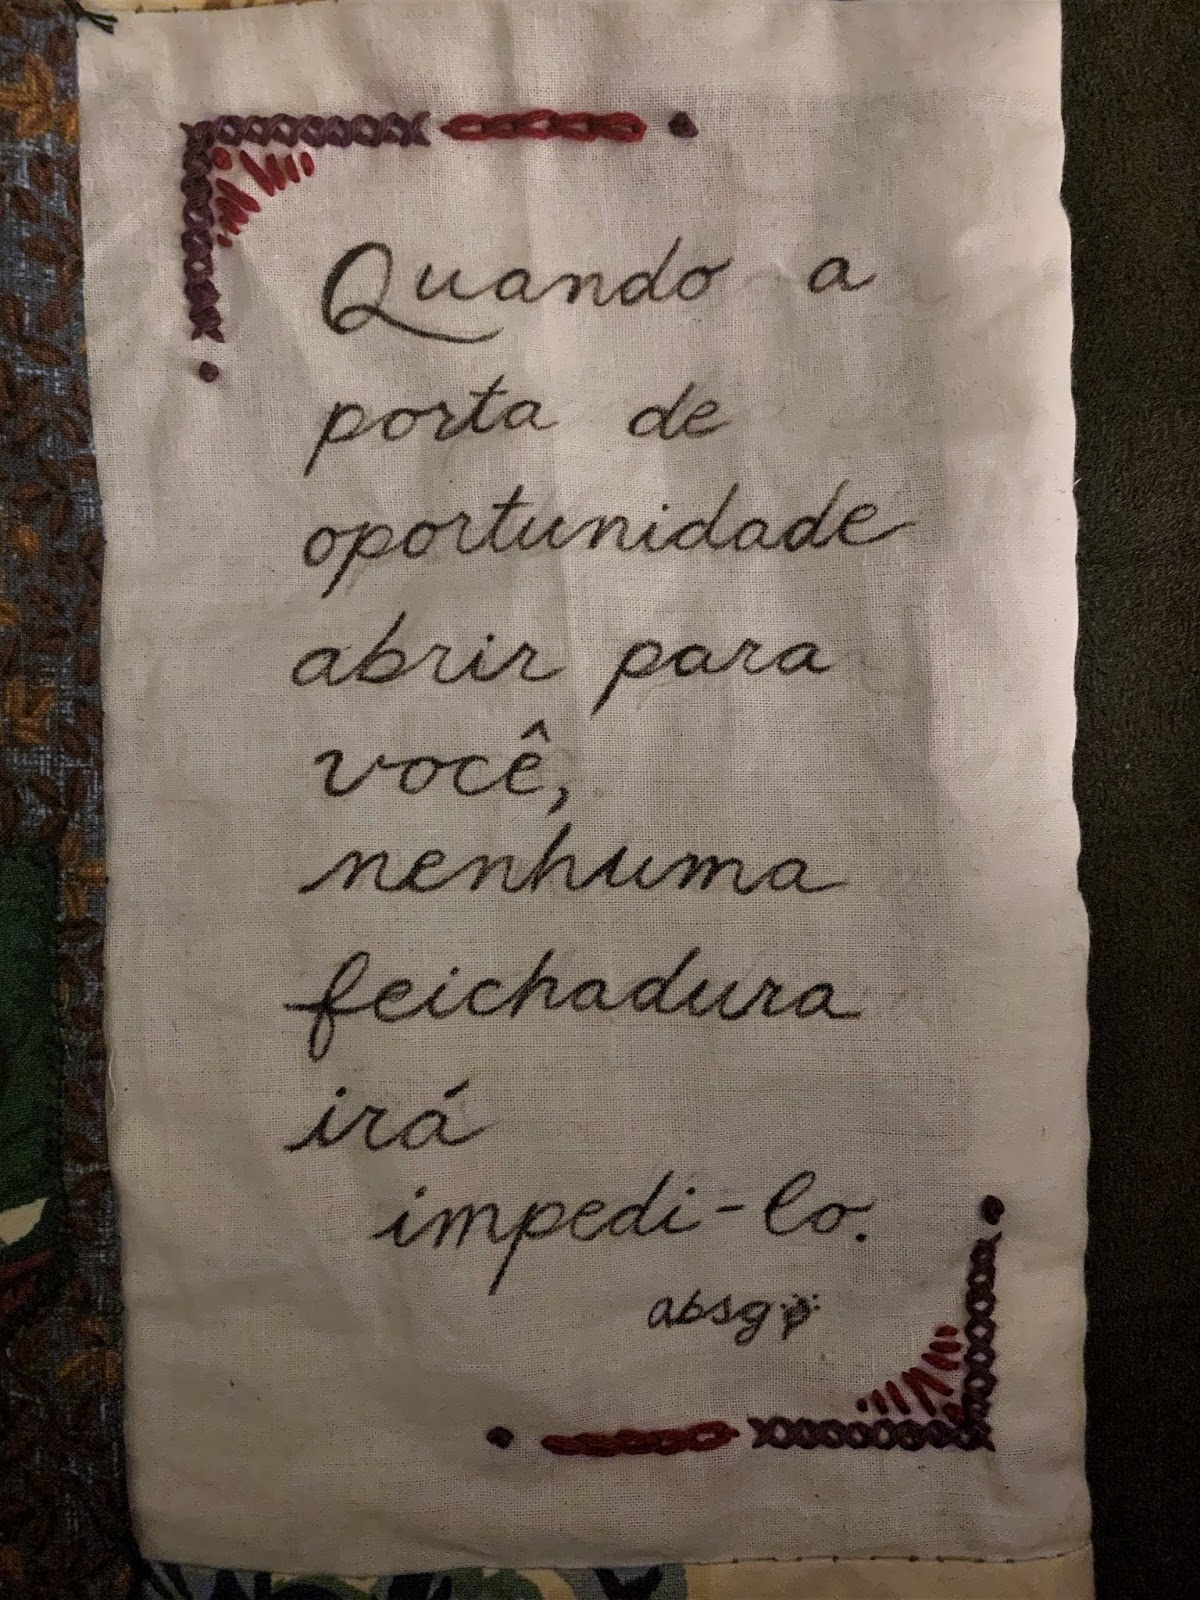 Quando a
porta de
oportunidade
abrir para
você,
nenhuma
feichadura
irá
impedi-lo.
absg